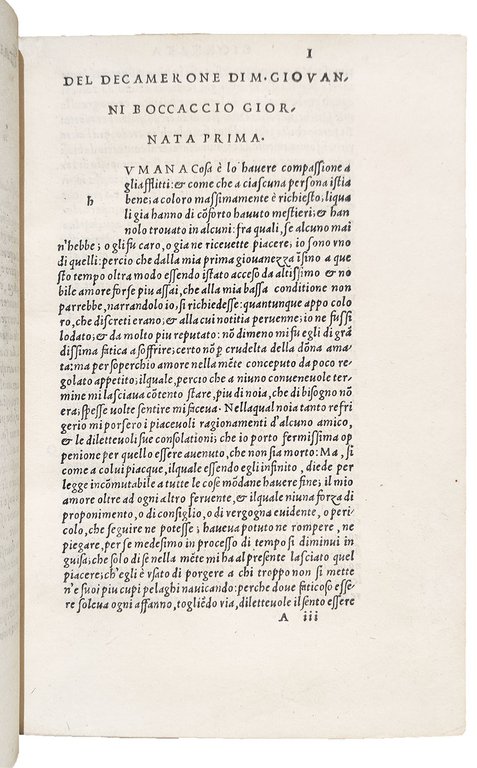 I
DEL DECAMERONE DI M. GIOVAN,
NI BOCCACCIO GIOR,
NATA PRIMA.
VMANA Cosa è lo hauere compassione a
gliafflitti: & come che a ciascuna persona istia
h
bene; a coloro massimamente è richiesto; liqua
li gia hanno di cõforto hauuto mestieri; & han
nolo trouato in alcuni: fra quali, se alcuno mai
n'hebbe; o gli fu caro, o gia ne riceuette piacere; io sono vno
di quelli: percio che dalla mia prima giouanezza ĩsino a que
sto tempo oltra modo essendo istato acceso da altissimo & no
bile amore forse piu assai, che alla mia bassa conditione non
parrebbe, narrandolo io, si richiedesse: quantunque appo colo
ro, che discreti erano; & alla cui notitia peruenne; io ne fussi
lodato; & da molto piu reputato: nõ dimeno mi fu egli di grã
dissima fatica a soffrire; certo nõ ꝑ crudelta della dõna ama
ta; ma per soperchio amore nella mẽte conceputo da poco re
golato appetito; ilquale, percio che a niuno conueneuole ter
mine mi lasciaua cõtento stare, piu di noia, che di bisogno nõ
era; spesse uolte sentire mi faceua. Nellaqual noia tanto refri
gerio mi porsero i piaceuoli ragionamenti d'alcuno amico,
& le diletteuoli sue consolationi; che io porto fermissima op
penione per quello essere auenuto, che non sia morto: Ma, si
come a colui piacque, ilquale essendo egli infinito, diede per
legge incõmutabile a tutte le cose mõdane hauere fine; il mio
amore oltre ad ogni altro feruente, & ilquale niuna forza di
proponimento, o di consiglio, o di vergogna euidente, o peri
colo, che seguire ne potesse; haueua potuto ne rompere, ne
piegare, per se medesimo in processo di tempo si diminui in
guisa; che solo di se nella mẽte mi ha al presente lasciato quel
piacere; ch'egli è vsato di porgere a chi troppo non si mette
n'e suoi piu cupi pelaghi nauicando: perche doue faticoso esse
re soleua ogni affanno, togliẽdo via, diletteuole il sento essere
A iii